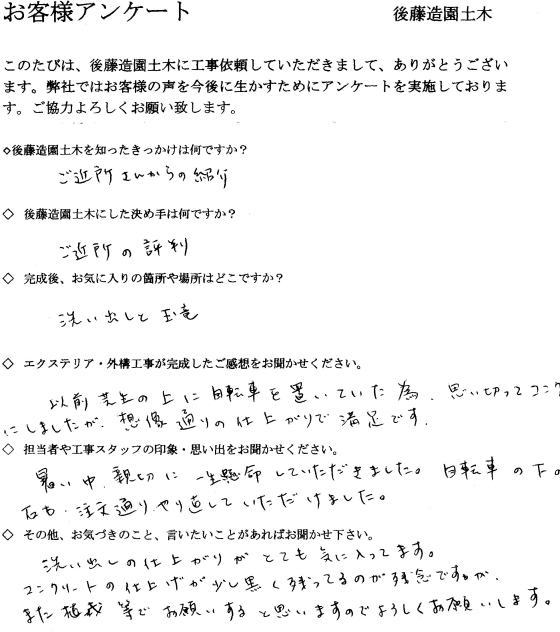 お客様アンケート
後藤造園土木
このたびは、後藤造園土木に工事依頼していただきまして、ありがとうござい
ます。弊社ではお客様の声を今後に生かすためにアンケートを実施しておりま
す。ご協力よろしくお願い致します。
◇後藤造園土木を知ったきっかけは何ですか？
ご近所さんからの紹介
◇ 後藤造園土木にした決め手は何ですか？
ご近所の評判
◇ 完成後、お気に入りの箇所や場所はどこですか？
洗い出しと玉竜
◇ エクステリア・外構工事が完成したご感想をお聞かせください。
以前芝生の上に自転車を置いていた為、思い切ってコンク
にしましたが、想像通りの仕上がりで満足です。
◇ 担当者や工事スタッフの印象・思い出をお聞かせください。
暑い中、親切に一生懸命していただきました。自転車の下の
石も、注文通りやり直していただけました。
◇ その他、お気づきのこと、言いたいことがあればお聞かせ下さい。
洗い出しの仕上がりがとても気に入ってます。
コンクリートの仕上げが少し黒く残ってるのが残念ですが、
また植栽等でお願いすると思いますのでよろしくお願いします。